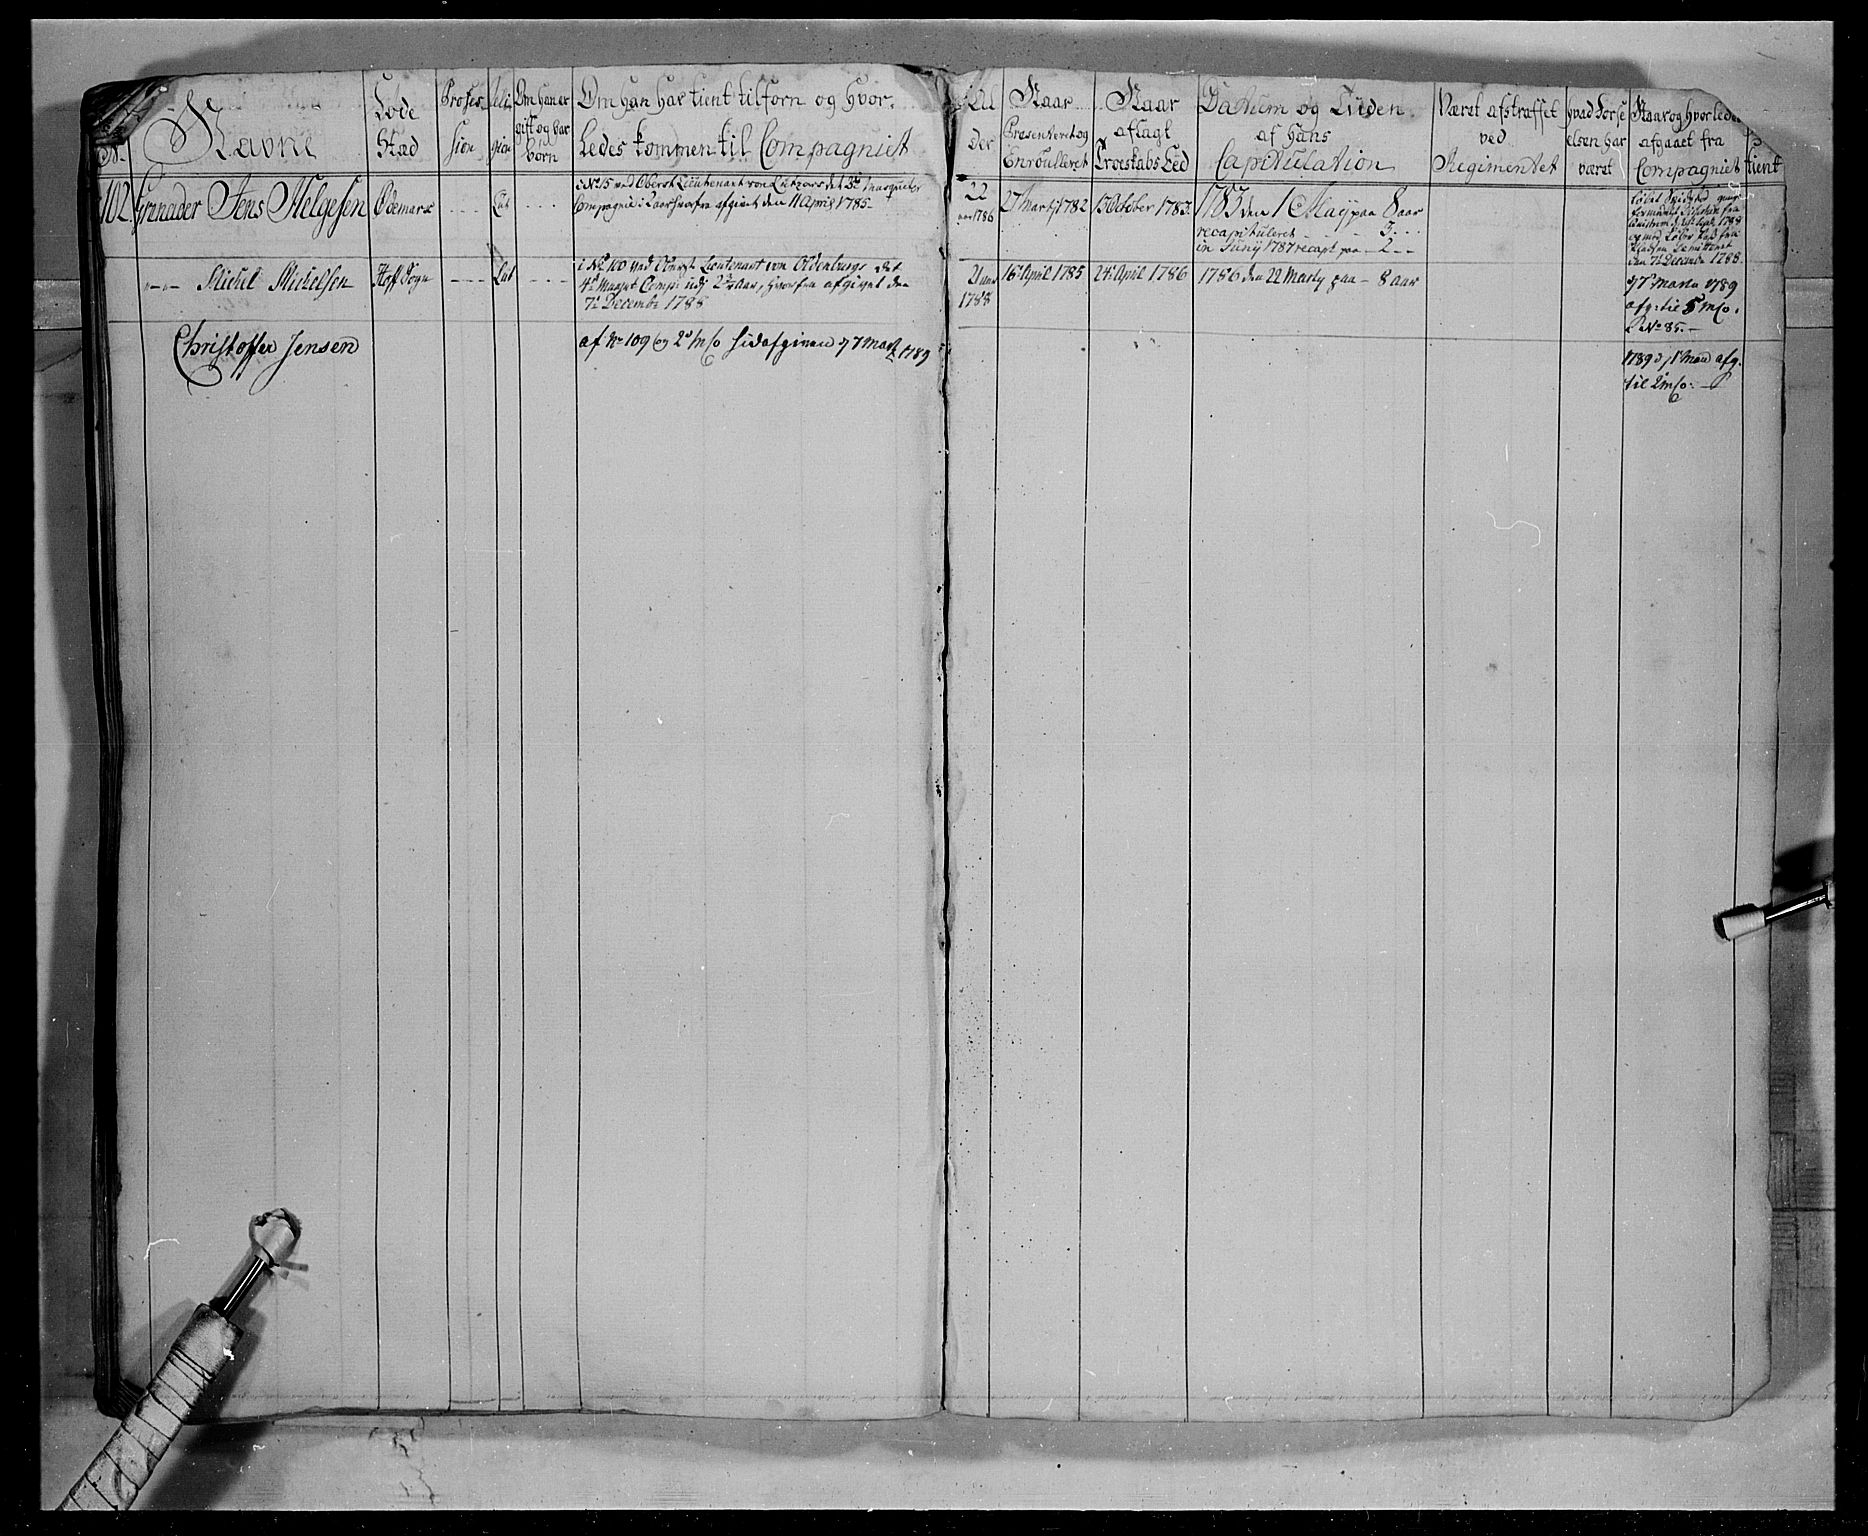 Nº
Navne
Føde
Stad
Profes-
sion
Reli
gion
Om han er
gift og har
børn
Om han har tient tilforn og hvor-
ledes kommen til Compagniet
Al
Der
Naar
Præsenteret og
Enroulleret
Naar
aflagt
Troeskabs Eed
Datum og Tiiden
af hans
Capitulation
Været afstraffet
ved
Regimentet
hvad Forse
elsen har
været
Naar og hvorlede
afgaaet fra
Compagniet
tient
102. Grenader Jens Helgesen
Ødemarx
Lut
i Nº 15 ved Oberst Lieutenant von det 3de Musqueter
Compagnie i aar hvorfra afgivet den 11 April 1785-
22
aar 1786
27 Martÿ 1782
13 October 1783
1783 den 1 Maÿ paa 8 aar
recapituleret - - - 3 - - -
in Junÿ 1787 recapt paa - 2 - -
1788
den 7de Decembr 1788
Michel Michelsen
Hoff Sogn
Lut
i Nº 100 ved Oberst Lieutenant von Oldenburgs det
4de Musqt Comp: udj 2de Aar, hvorfra afgivet den
7de Decembr 1788
21 aar
1788
16de April 1785
24de April 1786
1786 den 22 Martÿ paa - 8 aar
7de Martii 1789
afg: til 5 M/C.
Nº 85. -
Christoffer Jensen
af Nº 109 2de M/C hid afgiven d 7 Mart 1789
1789 d 1 afg.
til 2 M/C. -